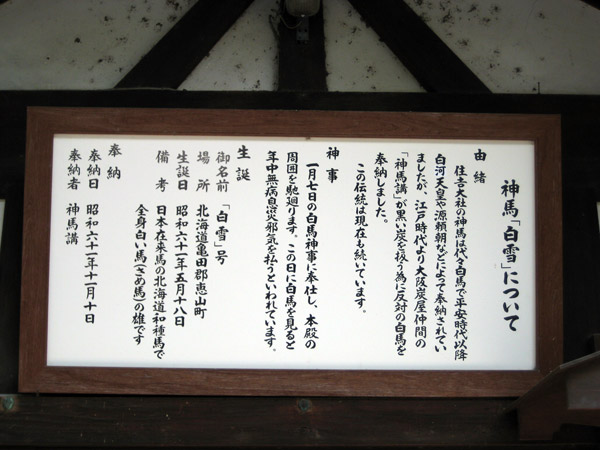 神馬「白雪」について
由緒
住吉大社の神馬は代々白馬で平安時代以降
白河天皇や源頼朝などによって奉納されてい
ましたが、江戸時代より大阪炭屋仲間の
「神馬講」が黒い炭を扱う為に反対の白馬を
奉納しました。
この伝統は現在も続いています。
神事
一月七日の白馬神事に奉仕し、本殿の
周囲を馳廻ります。この日に白馬を見ると
年中無病息災邪気を払うといわれています。
生誕
御名前 「白雪」号
場所 北海道亀田郡恵山町
生誕日 昭和六十一年五月十八日
備考 日本在来馬の北海道和種馬で
全身白い馬(さめ馬)の雄です
奉納
奉納日 昭和六十一年十一月十日
奉納者 神馬講